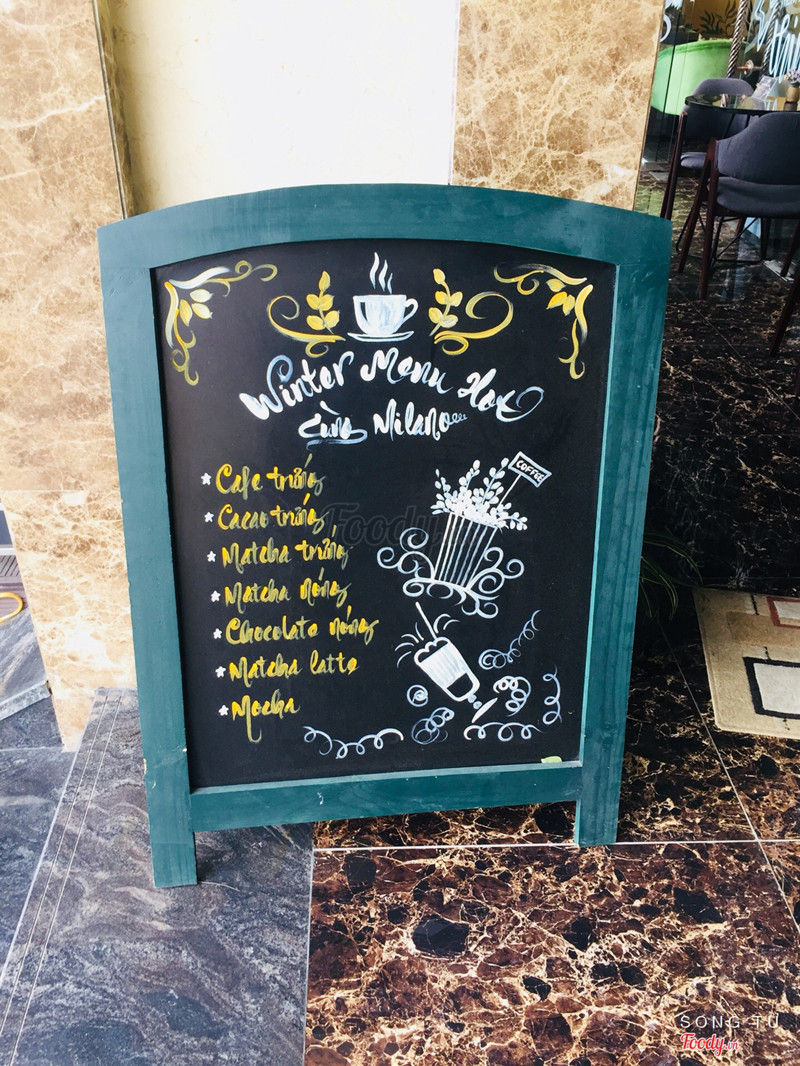 Winter Menu Hot
Cùng Milano
Cafe trứng
Cacao trứng
Matcha trứng
Matcha nóng
Chocolate nóng
Matcha latte
Mocha
COFFEE
Foody
SONG TỬ
Foody.vn